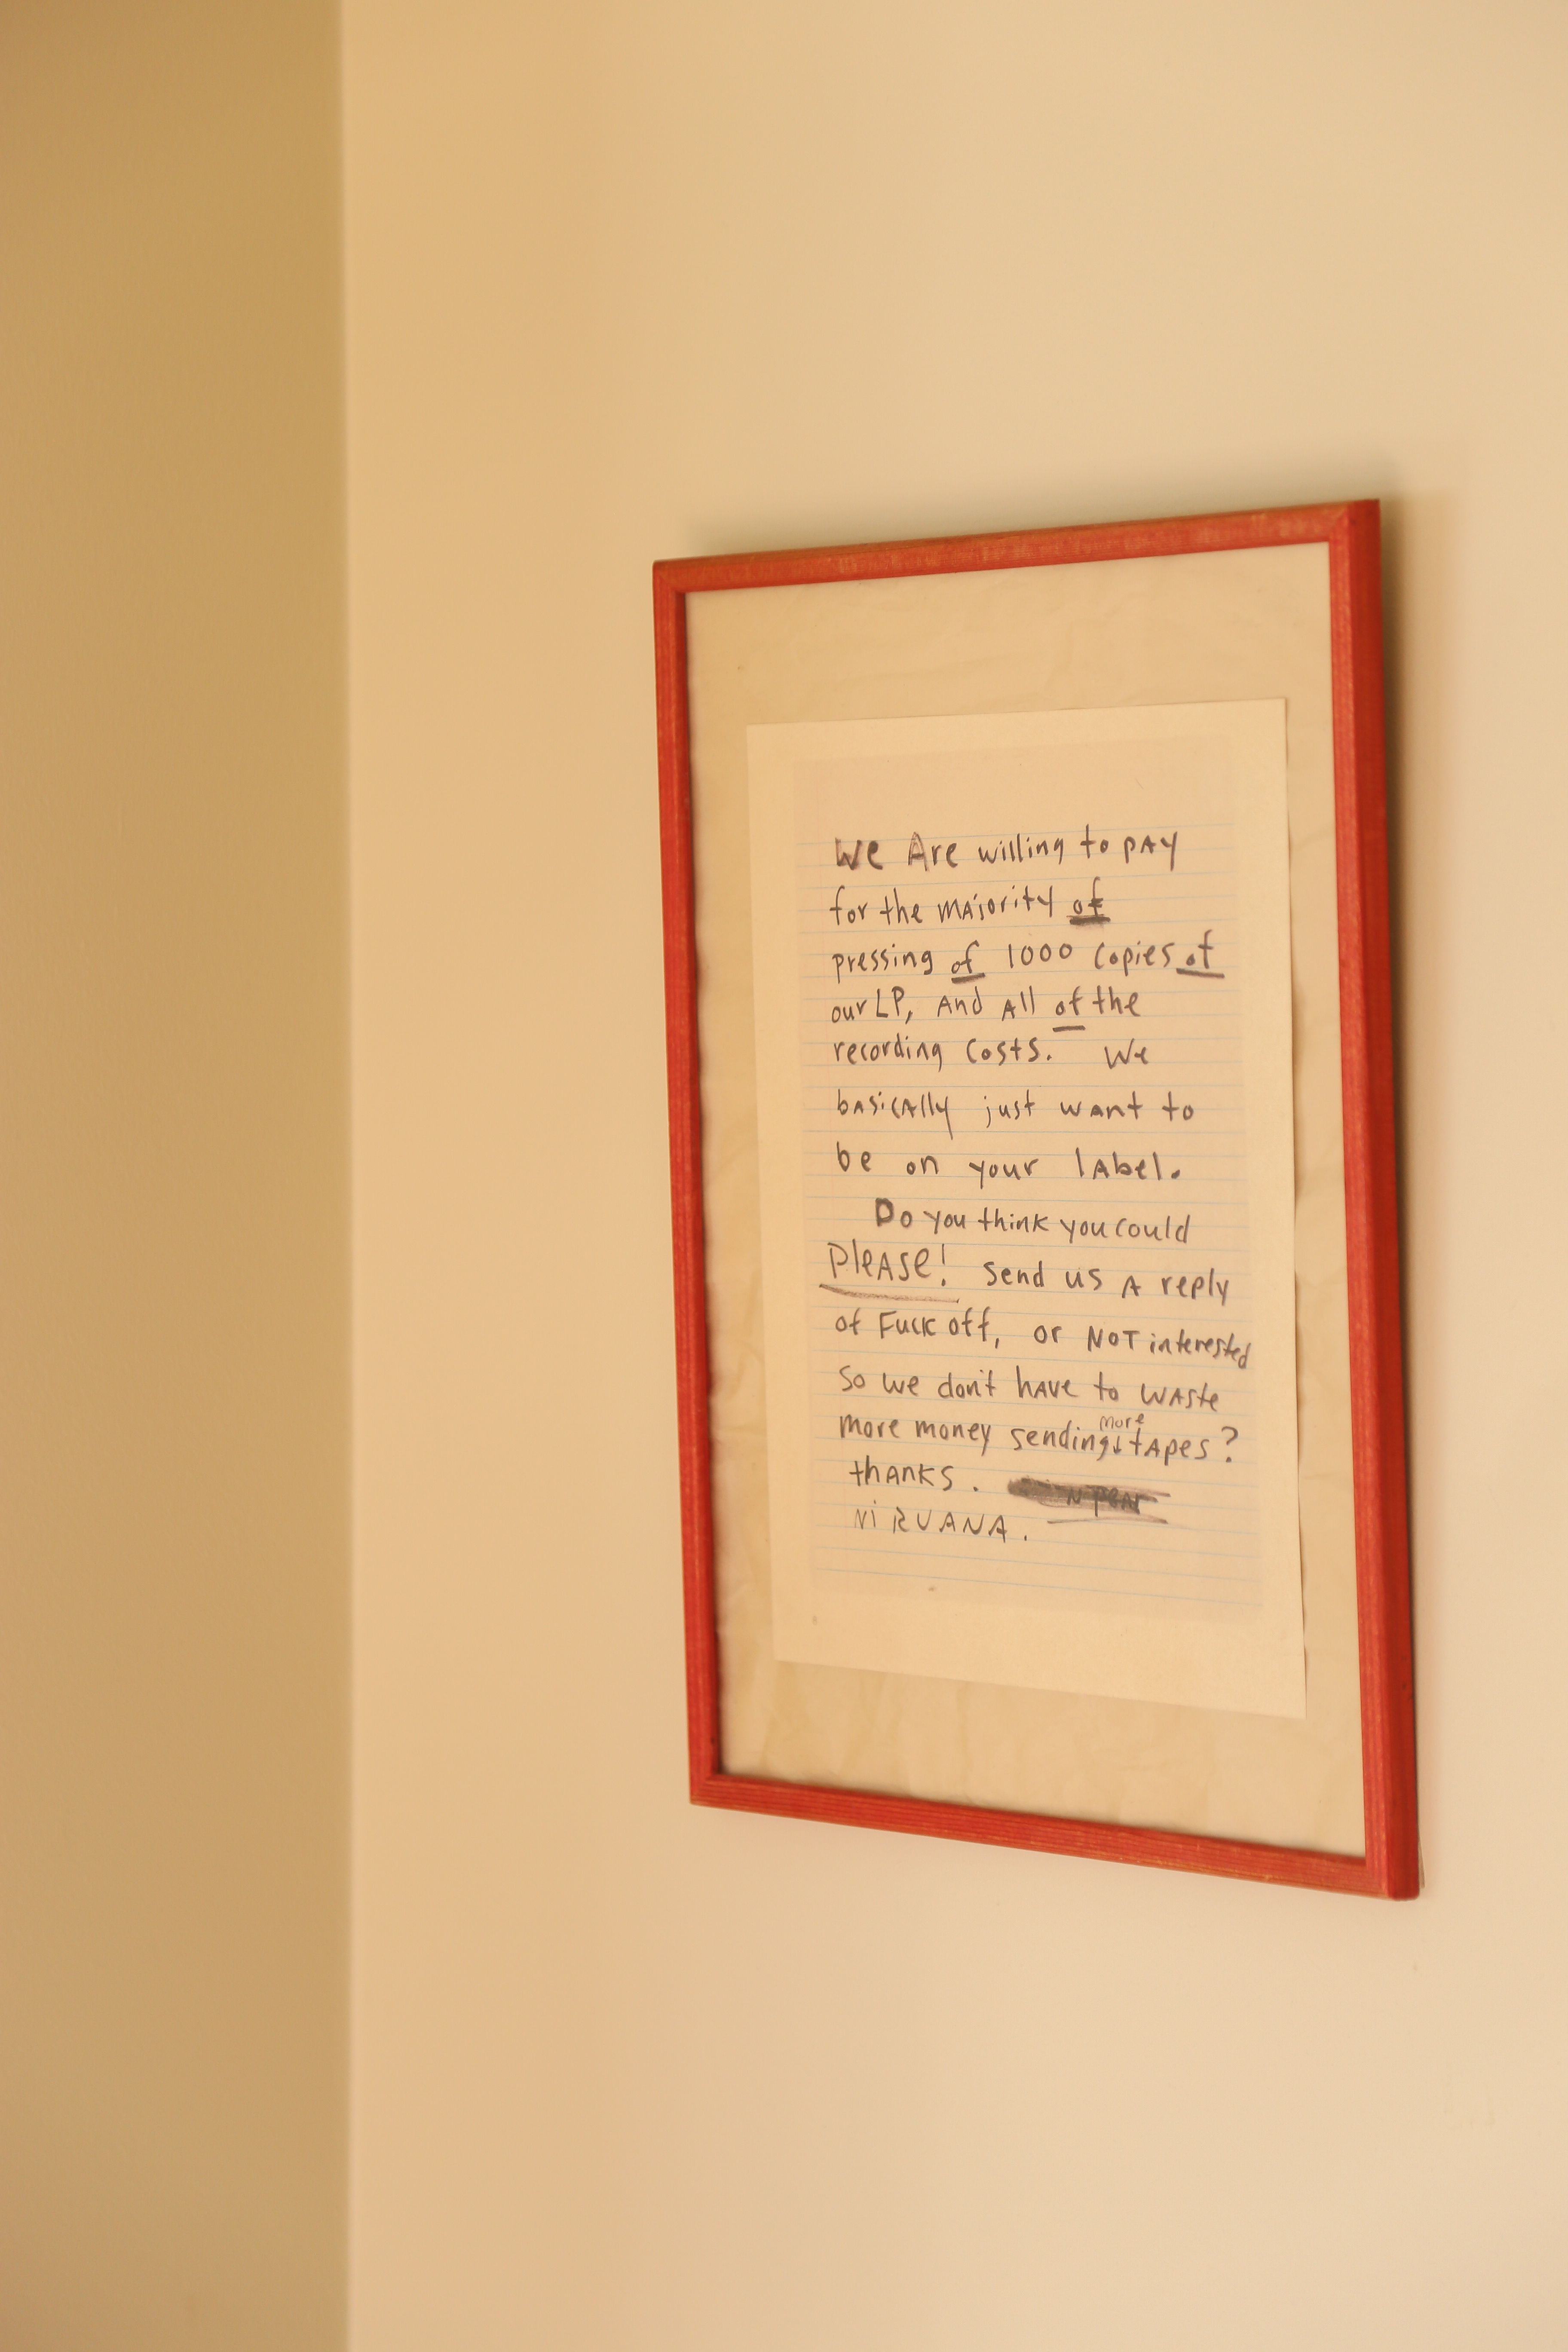 We Are willing to pAy
for the mAjority of
pressing of 1000 copies of
our LP, And All of the
recording costs. We
bAsicAlly just wAnt to
be on your lAbel.
Do you think you could
PleAse! send us A reply
of Fuck off, or NOT interested
so we don't hAve to wAste
more money sending more tApes?
thANKS.
NiRVANA.